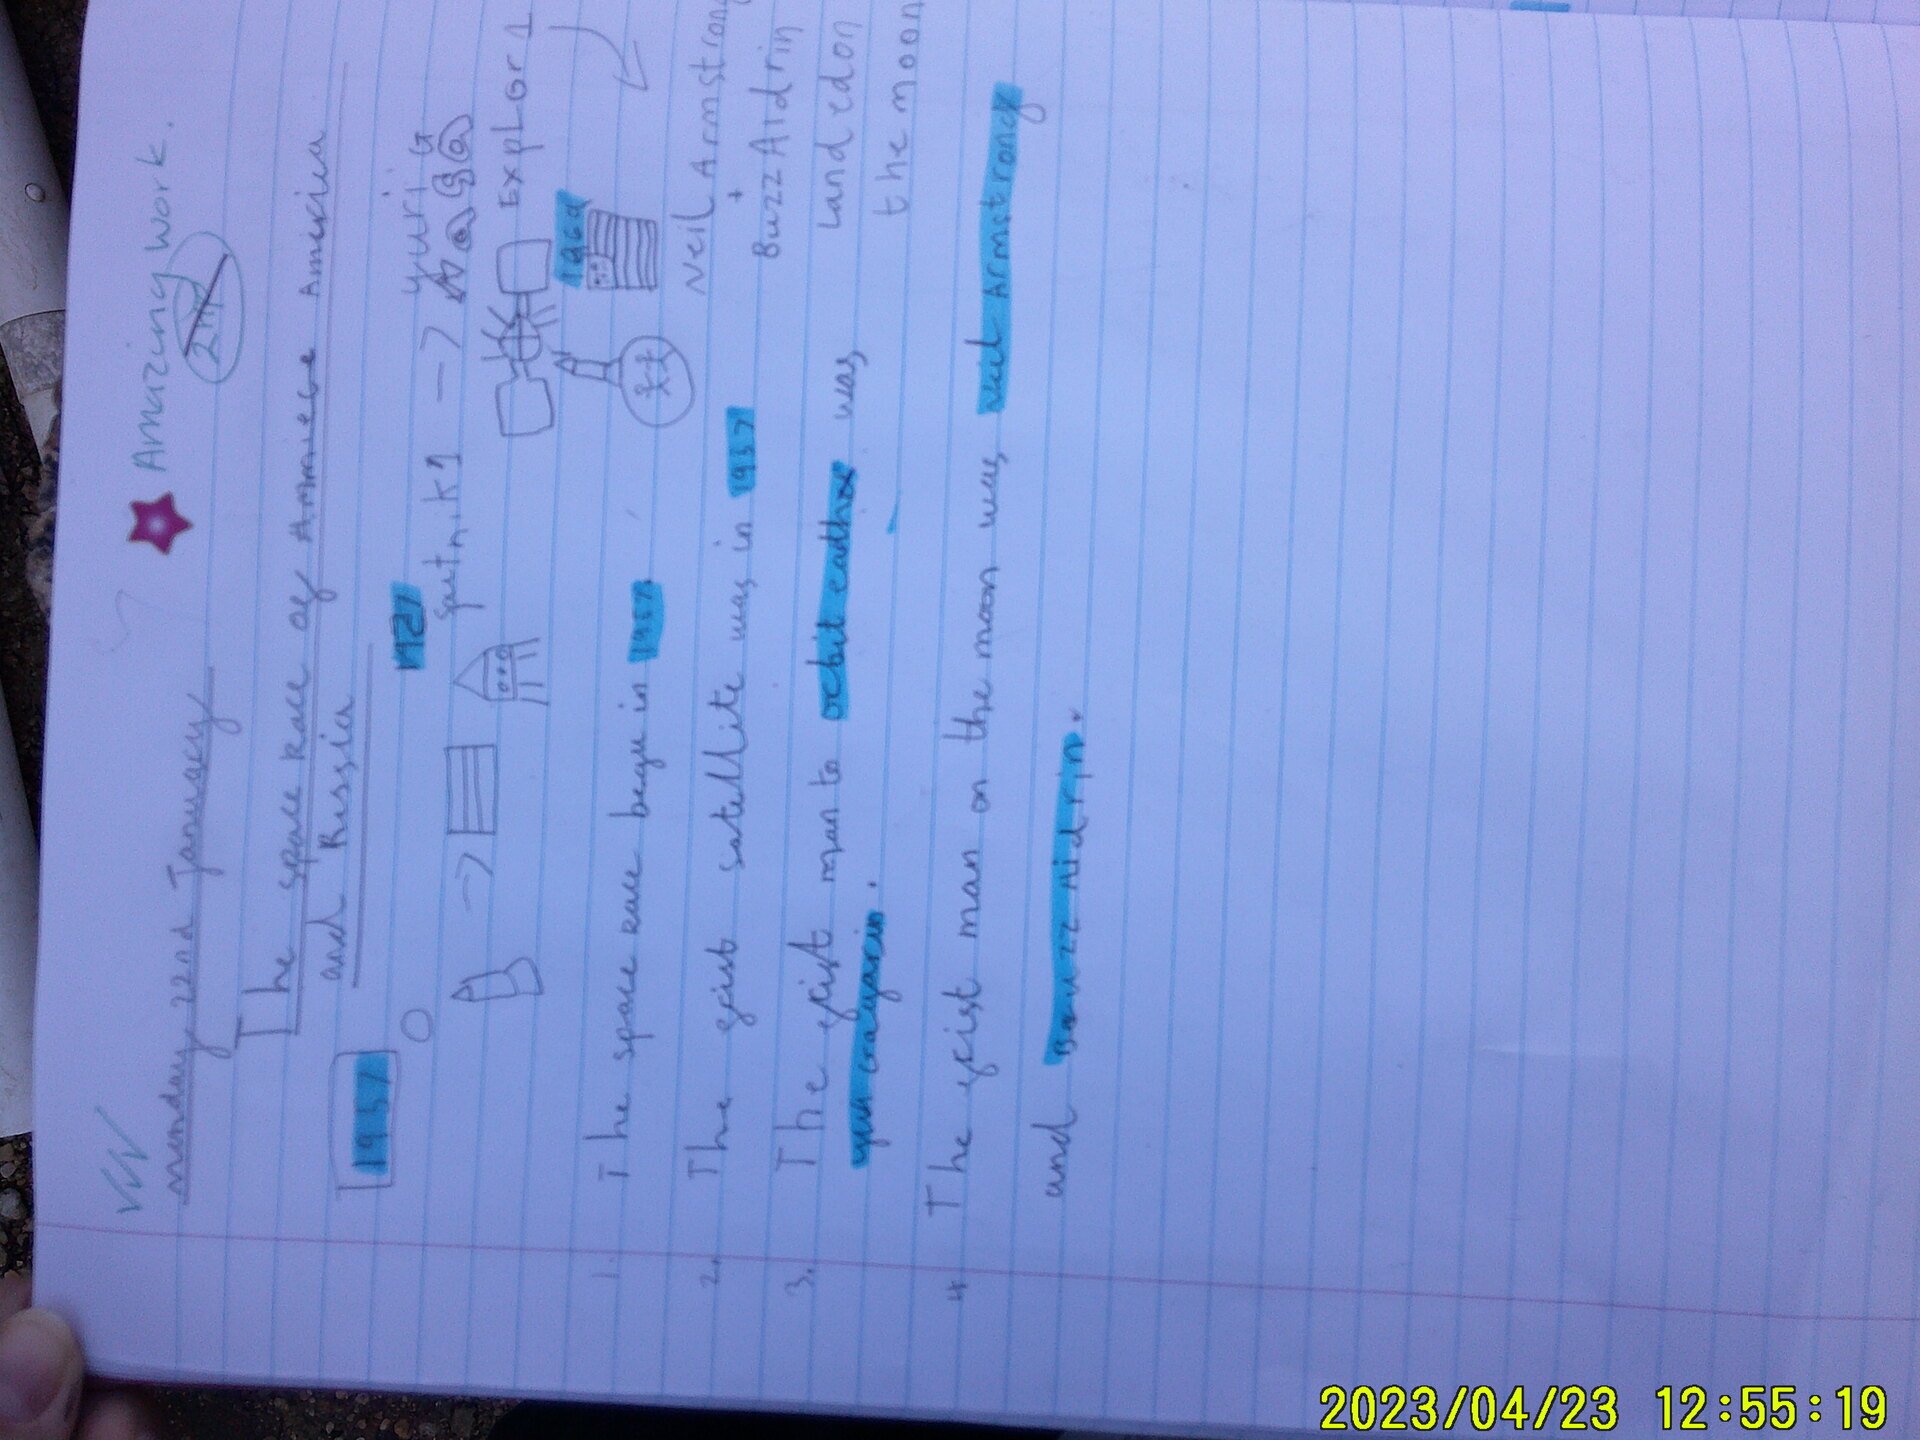 Amazing work.
2HP
monday 22nd January
The space Race of America
and Russia
1957
1921
Sputnik1 -> yuri G
Explor1
1969
Neil Armstrong
+
Buzz Aldrin
Landed on
the moon
1. The space race begu in 1957.
2. The first satellite was in 1957
3. The first man to orbit earth was
yuri Gragarin.
4 The first man on the moon was neil Armstrong
and Buzz Aldrin.
2023/04/23 12:55:19